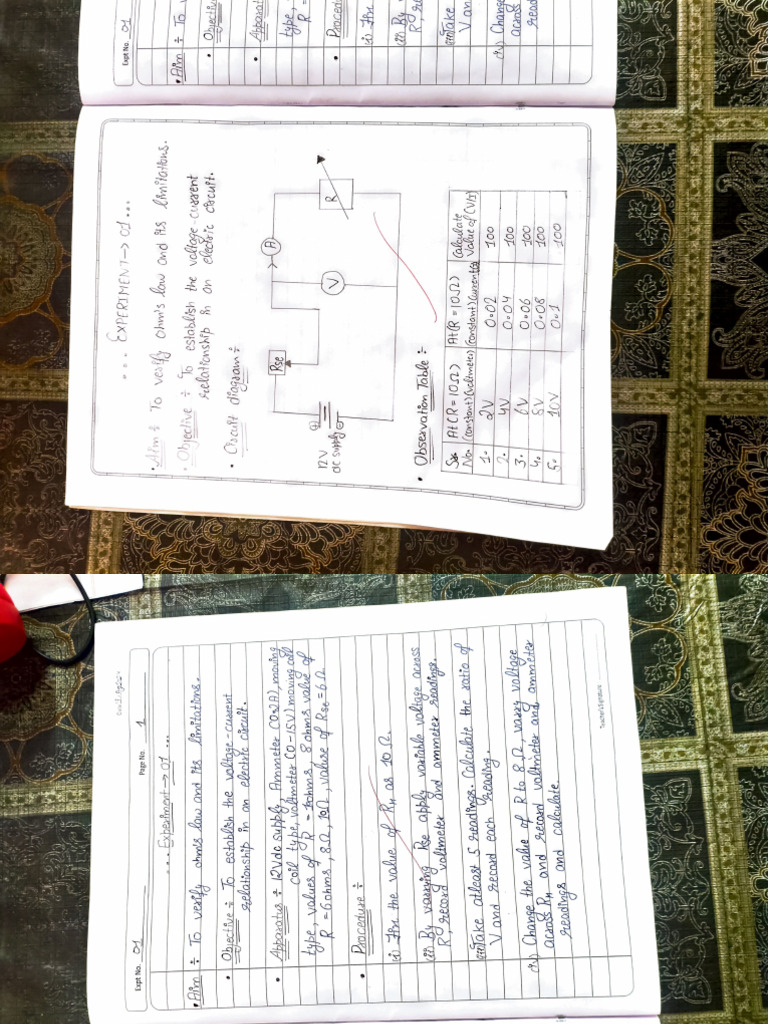 Expt No. 01
• Aim ÷ To v
• Objective
• Apparat
type,
R =
• Procedure
(i) Fix
(ii) By v
R, re
(iii) Take
V an
(iv) Chang
across
read
... EXPERIMENT → 01 ...
• Aim ÷ To verify ohm's law and its limitations.
• Objective ÷ To establish the voltage-current
relationship in an electric circuit.
• Circuit diagram ÷
Rse
A
V
R
12V
DC supply
• Observation Table :-
Sr. No. At (R = 10Ω) (constant) (voltmeter) At (R = 10Ω) (constant) current Calculate Value of (V/I)
1. 2V 0.02 100
2. 4V 0.04 100
3. 6V 0.06 100
4. 8V 0.08 100
5. 10V 0.1 100
Expt No. 01
Page No. 1
... Experiment → 01 ...
• Aim ÷ To verify ohm's law and its limitations.
• Objective ÷ To establish the voltage-current
relationship in an electric circuit.
• Apparatus ÷ 12V dc supply, Ammeter moving
coil type, voltmeter (0-15V) moving coil
type, values of R = 8 ohms value of
R = 6 ohms, 8Ω, 10Ω, value of Rse = 6Ω.
• Procedure ÷
(i) Fix the value of RH as 10 Ω.
(ii) By varying Rse apply variable voltage across
R, record voltmeter and ammeter readings.
(iii) Take atleast 5 readings. Calculate the ratio of
V and record each reading.
(iv) Change the value of R to 8 Ω, vary voltage
across RH and record voltmeter and ammeter
readings and calculate.
Teacher's Signature